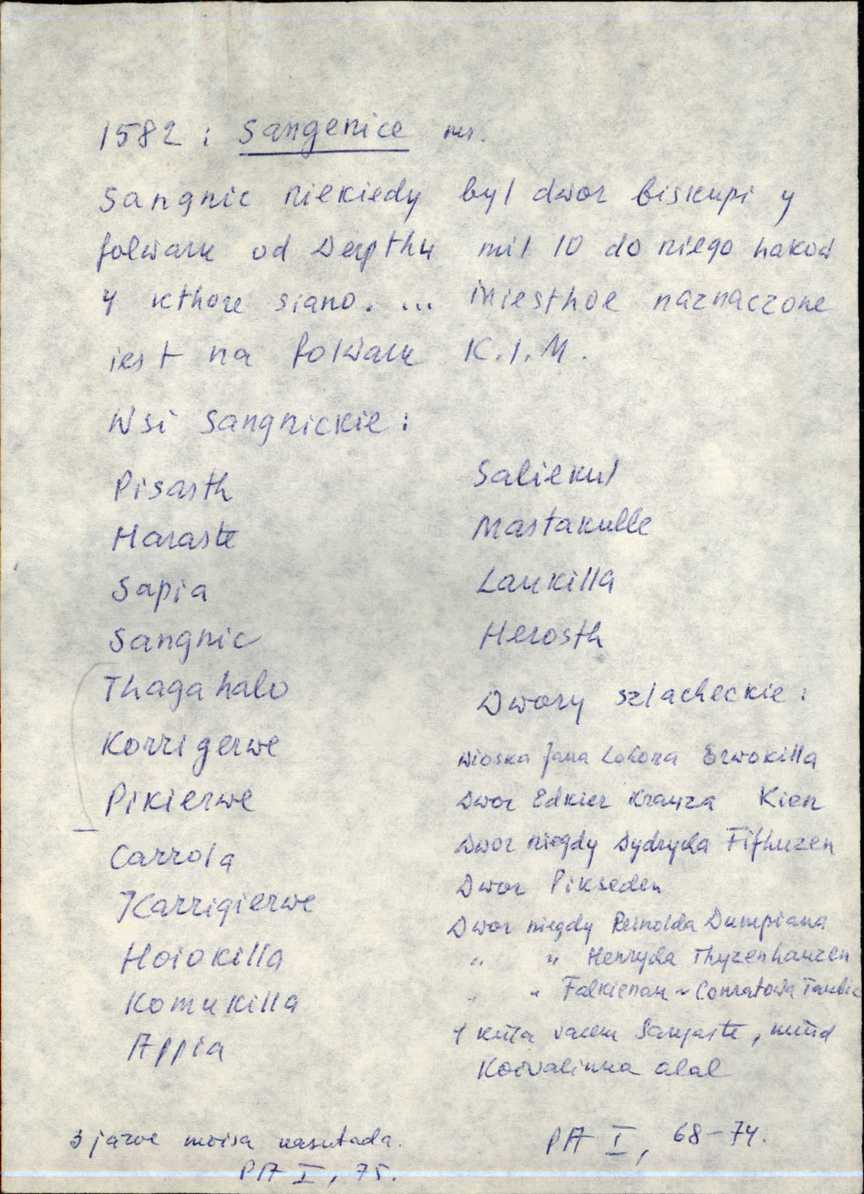 1582 : Sangenice ms.
Sangnic niekiedy byl dwor biskupi y
folwark od Derpthu mil 10 do niego
y kthore siano. ... miesthoe naznaczone
iest na folwark K.I.M.
Wsi Sangnickie :
Pisasth
Haraste
Sapia
Sangnic
Thagahalo
Korrigerwe
Pikierwe
Carrola
Karrigierwe
Hoiokilla
Komukilla
Appia
Saliekul
Mastakulle
Laukilla
Herosth
Dwory szlacheckie :
Wioska Jana Erwokilla
Dwor Edkier Krauza Kien
Dwor niegdy Dydrycha Fifhuzen
Dwor Pikseden
Dwor niegdy Reinolda Dumpiana
" " Henrycha Thyzenhauzen
" " Falkienau - Conratowa
1 küla vacem Sangaste, nüüd
Koivalinna alal
3 järve mõisa kasutada.
PA I, 75.
PA I, 68-74.